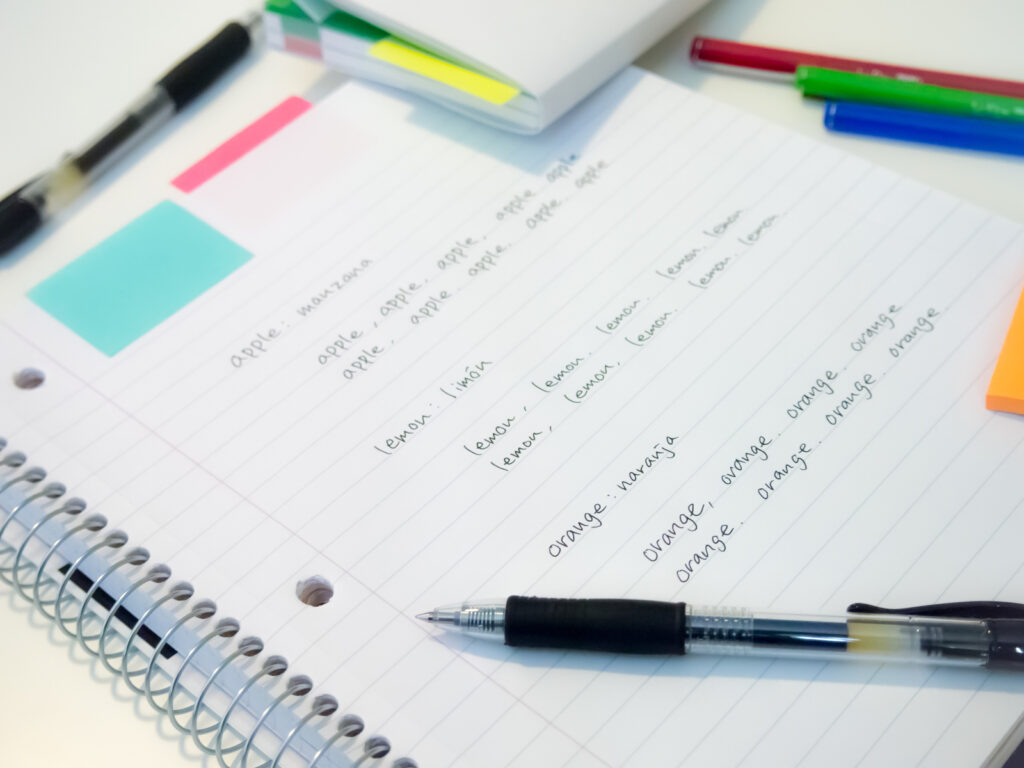 apple: manzana
apple, apple. apple. apple apple
apple, apple. apple. apple. apple
lemon: limón
lemon, lemon. lemon. lemon. lemon
lemon, lemon, lemon. lemon. lemon.
orange: naranja
orange, orange. orange. orange
orange. orange. orange. orange.